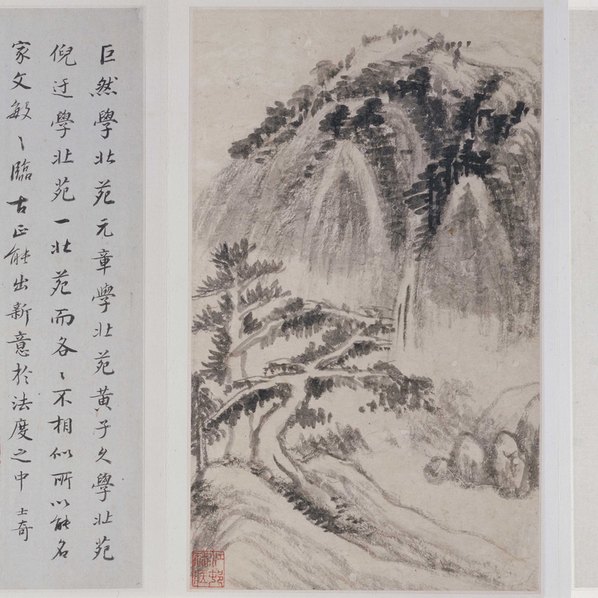 巨然學北苑元章學北苑黄子久學北苑
倪迂學北苑一北苑而各〻不相似所以能名
家文敏〻臨古正能出新意於法度之中 士奇